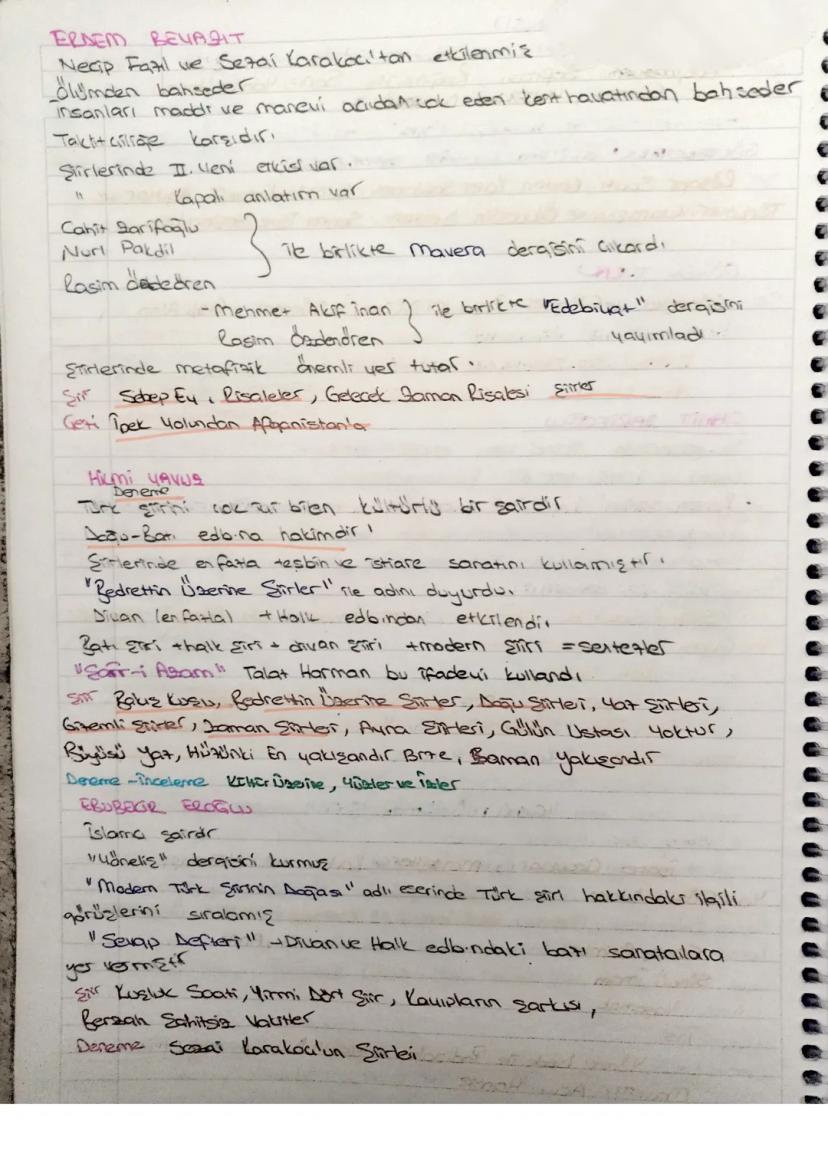 ERDEM BEYAZIT
Necip Fazıl ve Sezai Karakoç'tan etkilenmiş
Ölümden bahseder
insanları maddi ve manevi açıdan yok eden kent hayatından bahseder
Taklitçiliğe karşıdır.
Şiirlerinde II. Yeni etkisi var.
" Kapalı anlatım var
Cahit Zarifoğlu
Nuri Pakdil } ile birlikte Mavera dergisini çıkardı
Rasim Özdedören
- Mehmet Akif inan } ile birlikte "Edebiyat" dergisini
Rasim Özdendören yayımladı.
Şiirlerinde metafizik önemli yer tutar.
Şiir Sebep Ey, Risaleler, Gelecek Zaman Risalesi Şiirler
Gezi İpek Yolundan Afganistan'a
Hilmi YAVUZ
Deneme
Türk şiirini çok iyi bilen kültürlü bir şairdir
Doğu-Batı edb.na hakimdir!
Şiirlerinde en fazla teşbih ve istiare sanatını kullanmıştır.
"Bedrettin Üzerine Şiirler" ile adını duyurdu.
Divan (en fazla) + Halk edb.ından etkilendi.
Batı şiiri + halk şiiri + divan şiiri + modern şiiri = sentezler
"Şair-i Azam" Talat Harman bu ifadeyi kullandı
Şiir Bakış Kuşu, Bedrettin Üzerine Şiirler, Doğu Şiirleri, Yaz Şiirleri,
Gizemli Şiirler, Zaman Şiirleri, Ayna Şiirleri, Gülün Ustası Yoktur,
Büyüsü Yaz, Hüzünki En yakışandır Bize, Zaman yakışandır
Deneme - inceleme Kültür Üzerine, Yüzler ve İzler
EBUBEKİR EROĞLU
İslamcı şairdir
"Yöneliş" dergisini kurmuş
"Modern Türk Şiirinin Doğası" adlı eserinde Türk şiiri hakkındaki ilgili
görüşlerini sıralamış
"Sevap Defteri" → Divan ve Halk edb.ndaki bazı sanatçılara
yer vermiştir
Şiir Kuşluk Saati, Yirmi Dört Şiir, Kayıpların Şarkısı,
Berzah Şahitsiz Vakitler
Deneme Sezai Karakoç'un Şiirleri